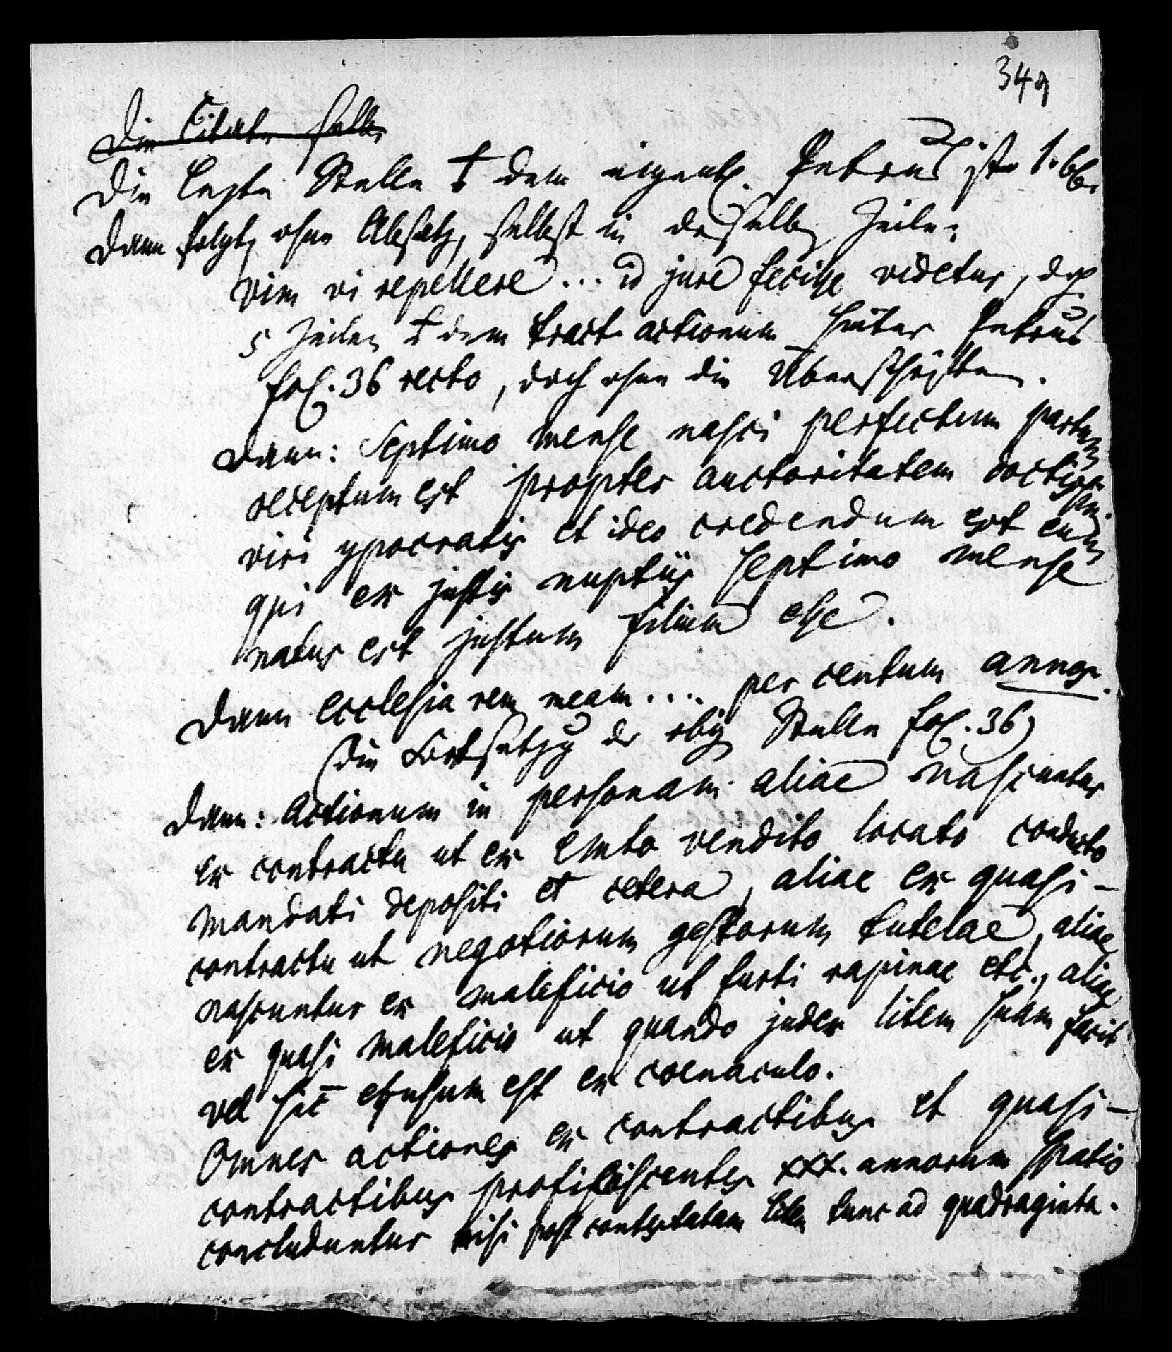 349
Die Citate selbe
Die letzte Stelle dem eigentl. Petrus ist 1.66.
Dann folgt, ohne Absatz, selbst in derselben Zeile:
vim vi repellere ... id jure fecisse videtur, das
5 Zeilen dem tract. actionum hinter Petrus
fol. 36 recto, doch ohne die Überschriften.
Dann: Septimo mense nasci perfectum partum
receptum est propter auctoritatem doctissimi
viri ypocratis et ideo credendum est eum
qui ex justis nuptiis septimo mense
natus est justum filium esse.
Dann ecclesia rem meam .... per centum annos.
(die Fortsetzung der obig. Stelle fol. 36)
Dann: Actionum in personam aliae nascuntur
ex contractu ut ex emto vendito locato conducto
mandati depositi et cetera, aliae ex quasi-
contractu ut negotiorum gestorum tutelae, aliae
nascuntur ex maleficio ut furti rapinae etc., aliae
ex quasi maleficio ut quando judex litem suam facit
vel sic effusum est ex coenaculo.
Omnes actiones ex contractibus et quasi-
contractibus proficiscentes xxx. annorum spatio
concluduntur nisi post contestatam litem tunc ad quadraginta.